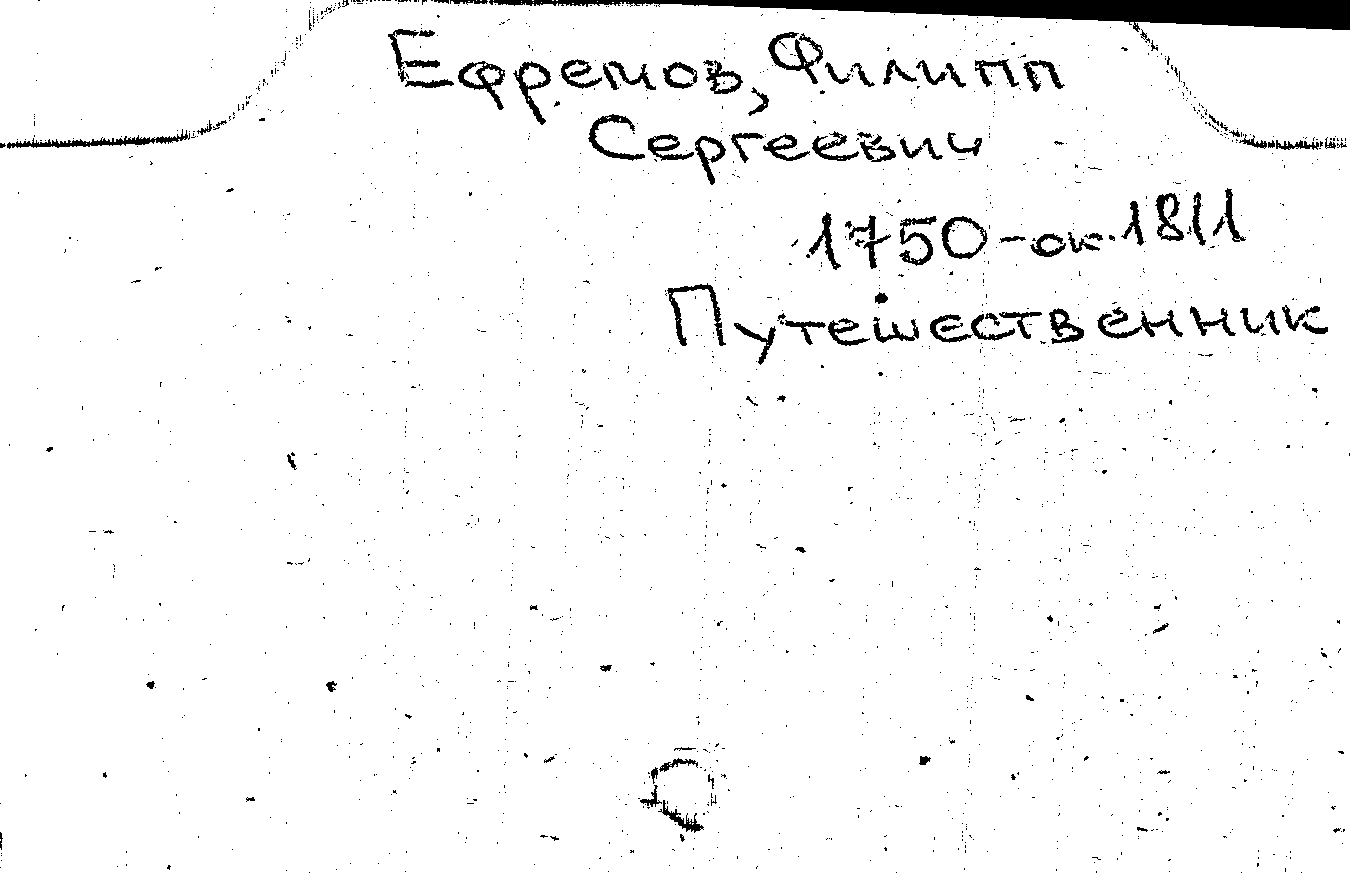 Ефремов, Филипп
Сергеевич
1750-ок.1811
Путешественник